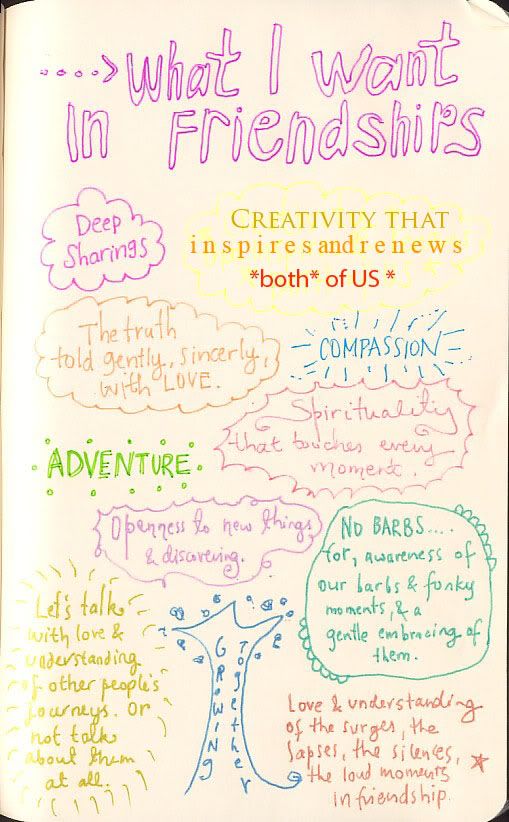 ....> What I Want
In Friendships
Deep
Sharings
CREATIVITY THAT
inspires and renews
*both* of US *
The truth
told gently, sincerly,
with LOVE.
COMPASSION
Spirituality
that touches every
moment.
ADVENTURE
Openness to new things
& discovering.
NO BARBS....
for, awareness of
our barbs & funky
moments, & a
gentle embracing of
them.
Let's talk
with love &
understanding
of other people's
journeys. Or
not talk
about them
at all.
GROWING
Together
Love & understanding
of the surges, the
lapses, the silences,
the loud moments
in friendship.